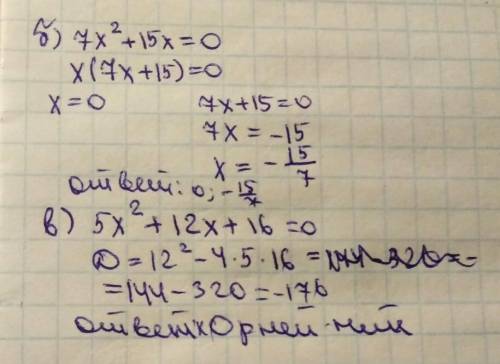 б) 7x² + 15x = 0
x(7x + 15) = 0
x = 0 7x + 15 = 0
7x = -15
x = -15/7
ответ: 0; -15/7
в) 5x² + 12x + 16 = 0
D = 12² - 4 · 5 · 16 =
= 144 - 320 = -176
ответ: